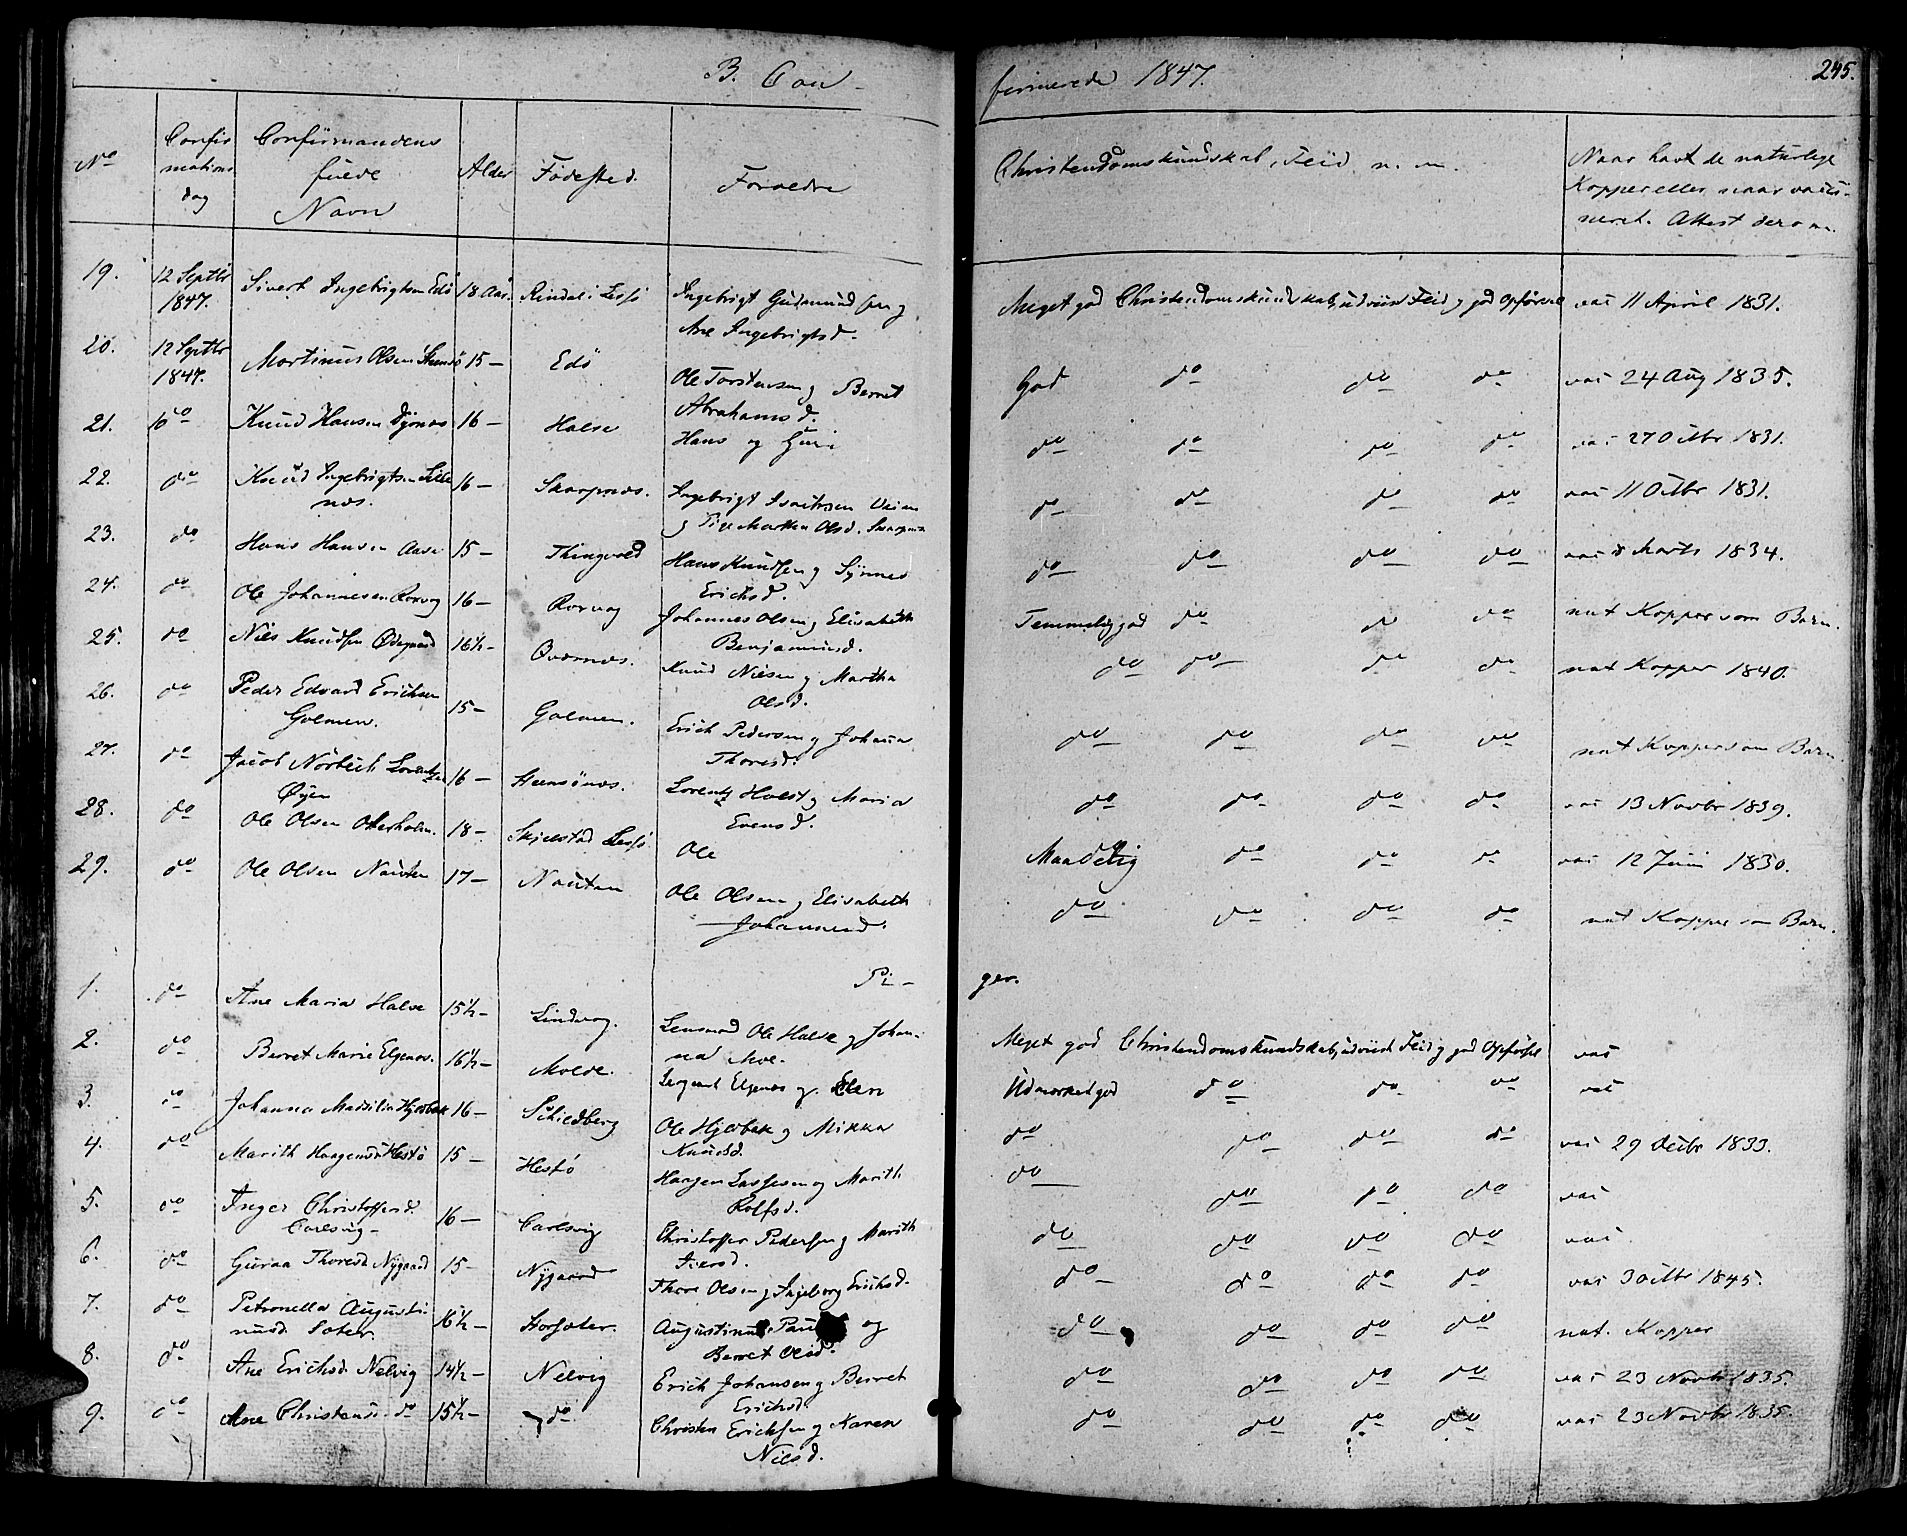 B. Con-
firmerede 1847.
245.
No
Confirmationsdag
Confirmandens fulde Navn
Alder
Fødested.
Forældre
Christendomskundskab, Fliid m. m.
Naar havt de naturlige
Kopper eller naar vacci-
neret. Attest derom.
19. 12 Septbr 1847. Sivert Ingebrigtsen Edø 18 Aar. Rindal i Lesjø Ingebrigt Gudmundsen og
Ane Ingebrigtsd. Meget god Christendomskundskab, udviist Fliid og god Opførsel vac 11 April 1831.
20. 12 Septbr 1847. Martinus Olsen 15 - Edø Ole Torstensen og Berret
Abrahamsd. God do do do vac 24 Aug 1835.
21. do Knud Hansen 16 - Halse Hans og Guri do do do do vac 27 Octbr 1831.
22. do Knud Ingebrigtsen Lille
næs. 16 - Skarpnæs. Ingebrigt
og Martha Olsd. do do do do vac 11 Octbr 1831.
23. do Hans Hansen Aase 15 - Thingvold Hans Knudsen og Synnev
Erichsd. do do do do vac 8 Marts 1834.
24. do Ole Johannesen Rorvog 16 - Rorvog Johannes Olsen og Elisabeth
Benjaminsd. Temmelig god do do do nat Kopper som Barn.
25. do Niels Knudsen Ødegaard 16½ - Qværnæs. Knud Nielsen og Martha
Olsd. do do do do nat Kopper 1840.
26. do Peder Edvard Erichsen
Golmen. 15 - Golmen. Erich Pedersen og Johanna
Thoresd. do do do do nat Kopper som Barn
27. do Jacob Norbech Lorentzen
Øyen 16 - Steensønæs. Lorentz Holst og Maria
Evensd. do do do do vac 13 Novbr 1839.
28. do Ole Olsen Otterholm. 18 - Skjelstad Lesjø Ole Maadelig do do do vac 12 Juni 1830.
29. do Ole Olsen Nausten 17 - Naustan Ole Olsen og Elisabeth
Johannesd. do do do do nat Kopper som Barn.
Pi-
ger.
1. do Ane Maria Halse 15½ - Lindvog. Lensmand Ole Halse og Johan-
na Moe. Meget god Christendomskundskab, udviist Fliid og god Opførsel vac
2. do Berret Marie Elgenæs. 16½ - Molde. Sergeant Elgenæs og Elen Udmærket god do do do vac
3. do Johanna Hjelbak 16 - Schiedberg Ole Hjelbak og Mikka
Knudsd. do do do do vac 29 Decbr 1833.
4. do Marith Haagensd. Hestø 15 - Hestø Haagen Lassesen og Marith
Rolfsd. do do do do vac
5. do Inger Christoffersd.
Carlsvig - 16 - Carlsvig Christoffer Pedersen og Marith
Iversd. do do do do vac
6. do Guraa Thoresd. Nygaard 15 - Nygaard Thore Olsen og Ingeborg Erichsd. do do do do vac 3 Octbr 1845.
7. do Petronella Augusti-
nusd. Sæter. 16½ - Storsæter. Augustinus og
Berret Olsd. do do do do nat. Kopper
8. do Ane Erichsd. Nelvig 14½ - Nelvig Erich Johansen og Berret
Erichsd. do do do do vac 23 Novbr 1835.
9. do Ane Christensd. do 15½ - do Christen Erichsen og Karen
Nielsd. do do do do vac 23 Novbr 1835.